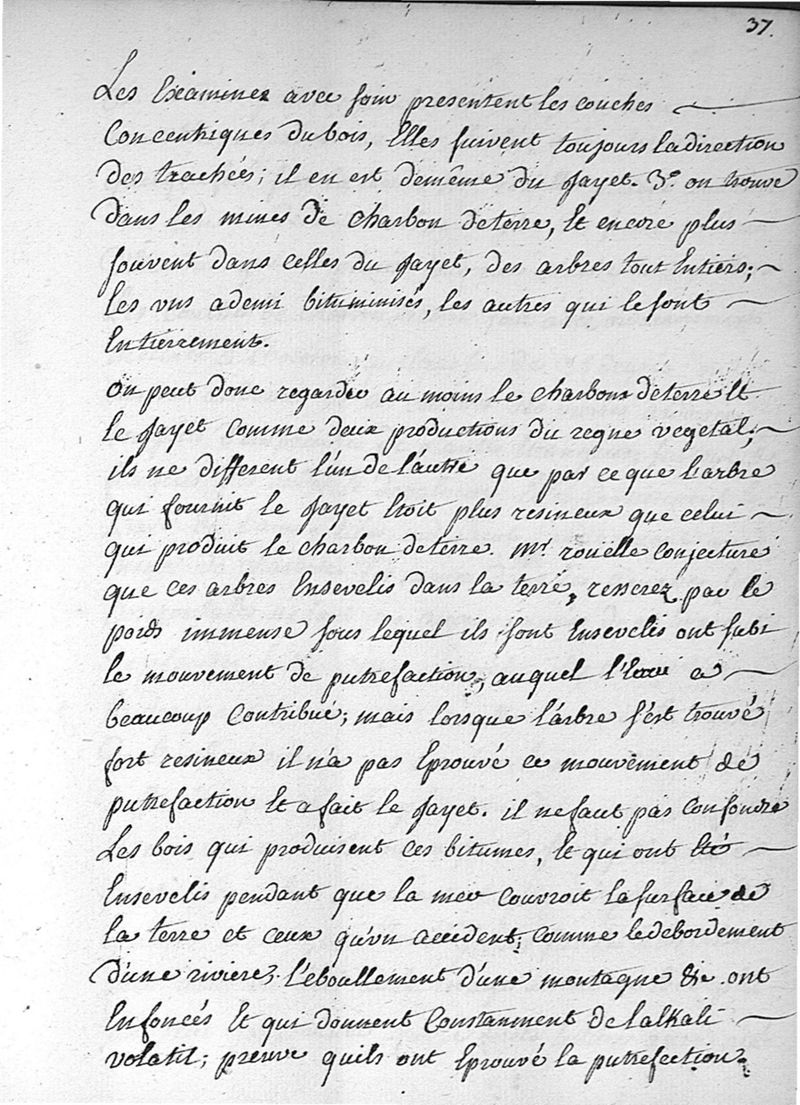 37.
Les Examinez avec soin presentent les couches
Concentriques du bois, Elles suivent toujours la direction
des trachées; il en est demême du Jayet. 3.º on trouve
dans les mines de charbon de terre, Et encore plus
souvent dans celles du Jayet, des arbres tout Entiers;
les uns ademi bituminisés, les autres qui le sont
Entierrement.
on peut donc regarder au moins le charbon de terre Et
le Jayet comme deux productions du regne vegetal;
ils ne different l'un de l'autre que par ce que l'arbre
qui fournit le Jayet Etoit plus resineux que celui
qui produit le charbon de terre. Mr. rouelle conjecture
que ces arbres Ensevelis dans la terre, resserez par le
poids immense sous lequel ils sont Ensevelis ont subi
le mouvement de putrefaction, auquel l'Eau a
beaucoup Contribué; mais lorsque l'arbre s'est trouvé
fort resineux il n'a pas Eprouvé ce mouvement de
putrefaction Et a fait le Jayet. il ne faut pas confondre
Les bois qui produisent ces bitumes, Et qui ont Eté
Ensevelis pendant que la mer couvroit la surface de
la terre et ceux qu'un accident, comme le debordement
d'une riviere, l'eboullement d'une montagne &c. ont
Enfoncés Et qui donnent Constamment de l'alkali
volatil; preuve quils ont Eprouvé la putrefection.